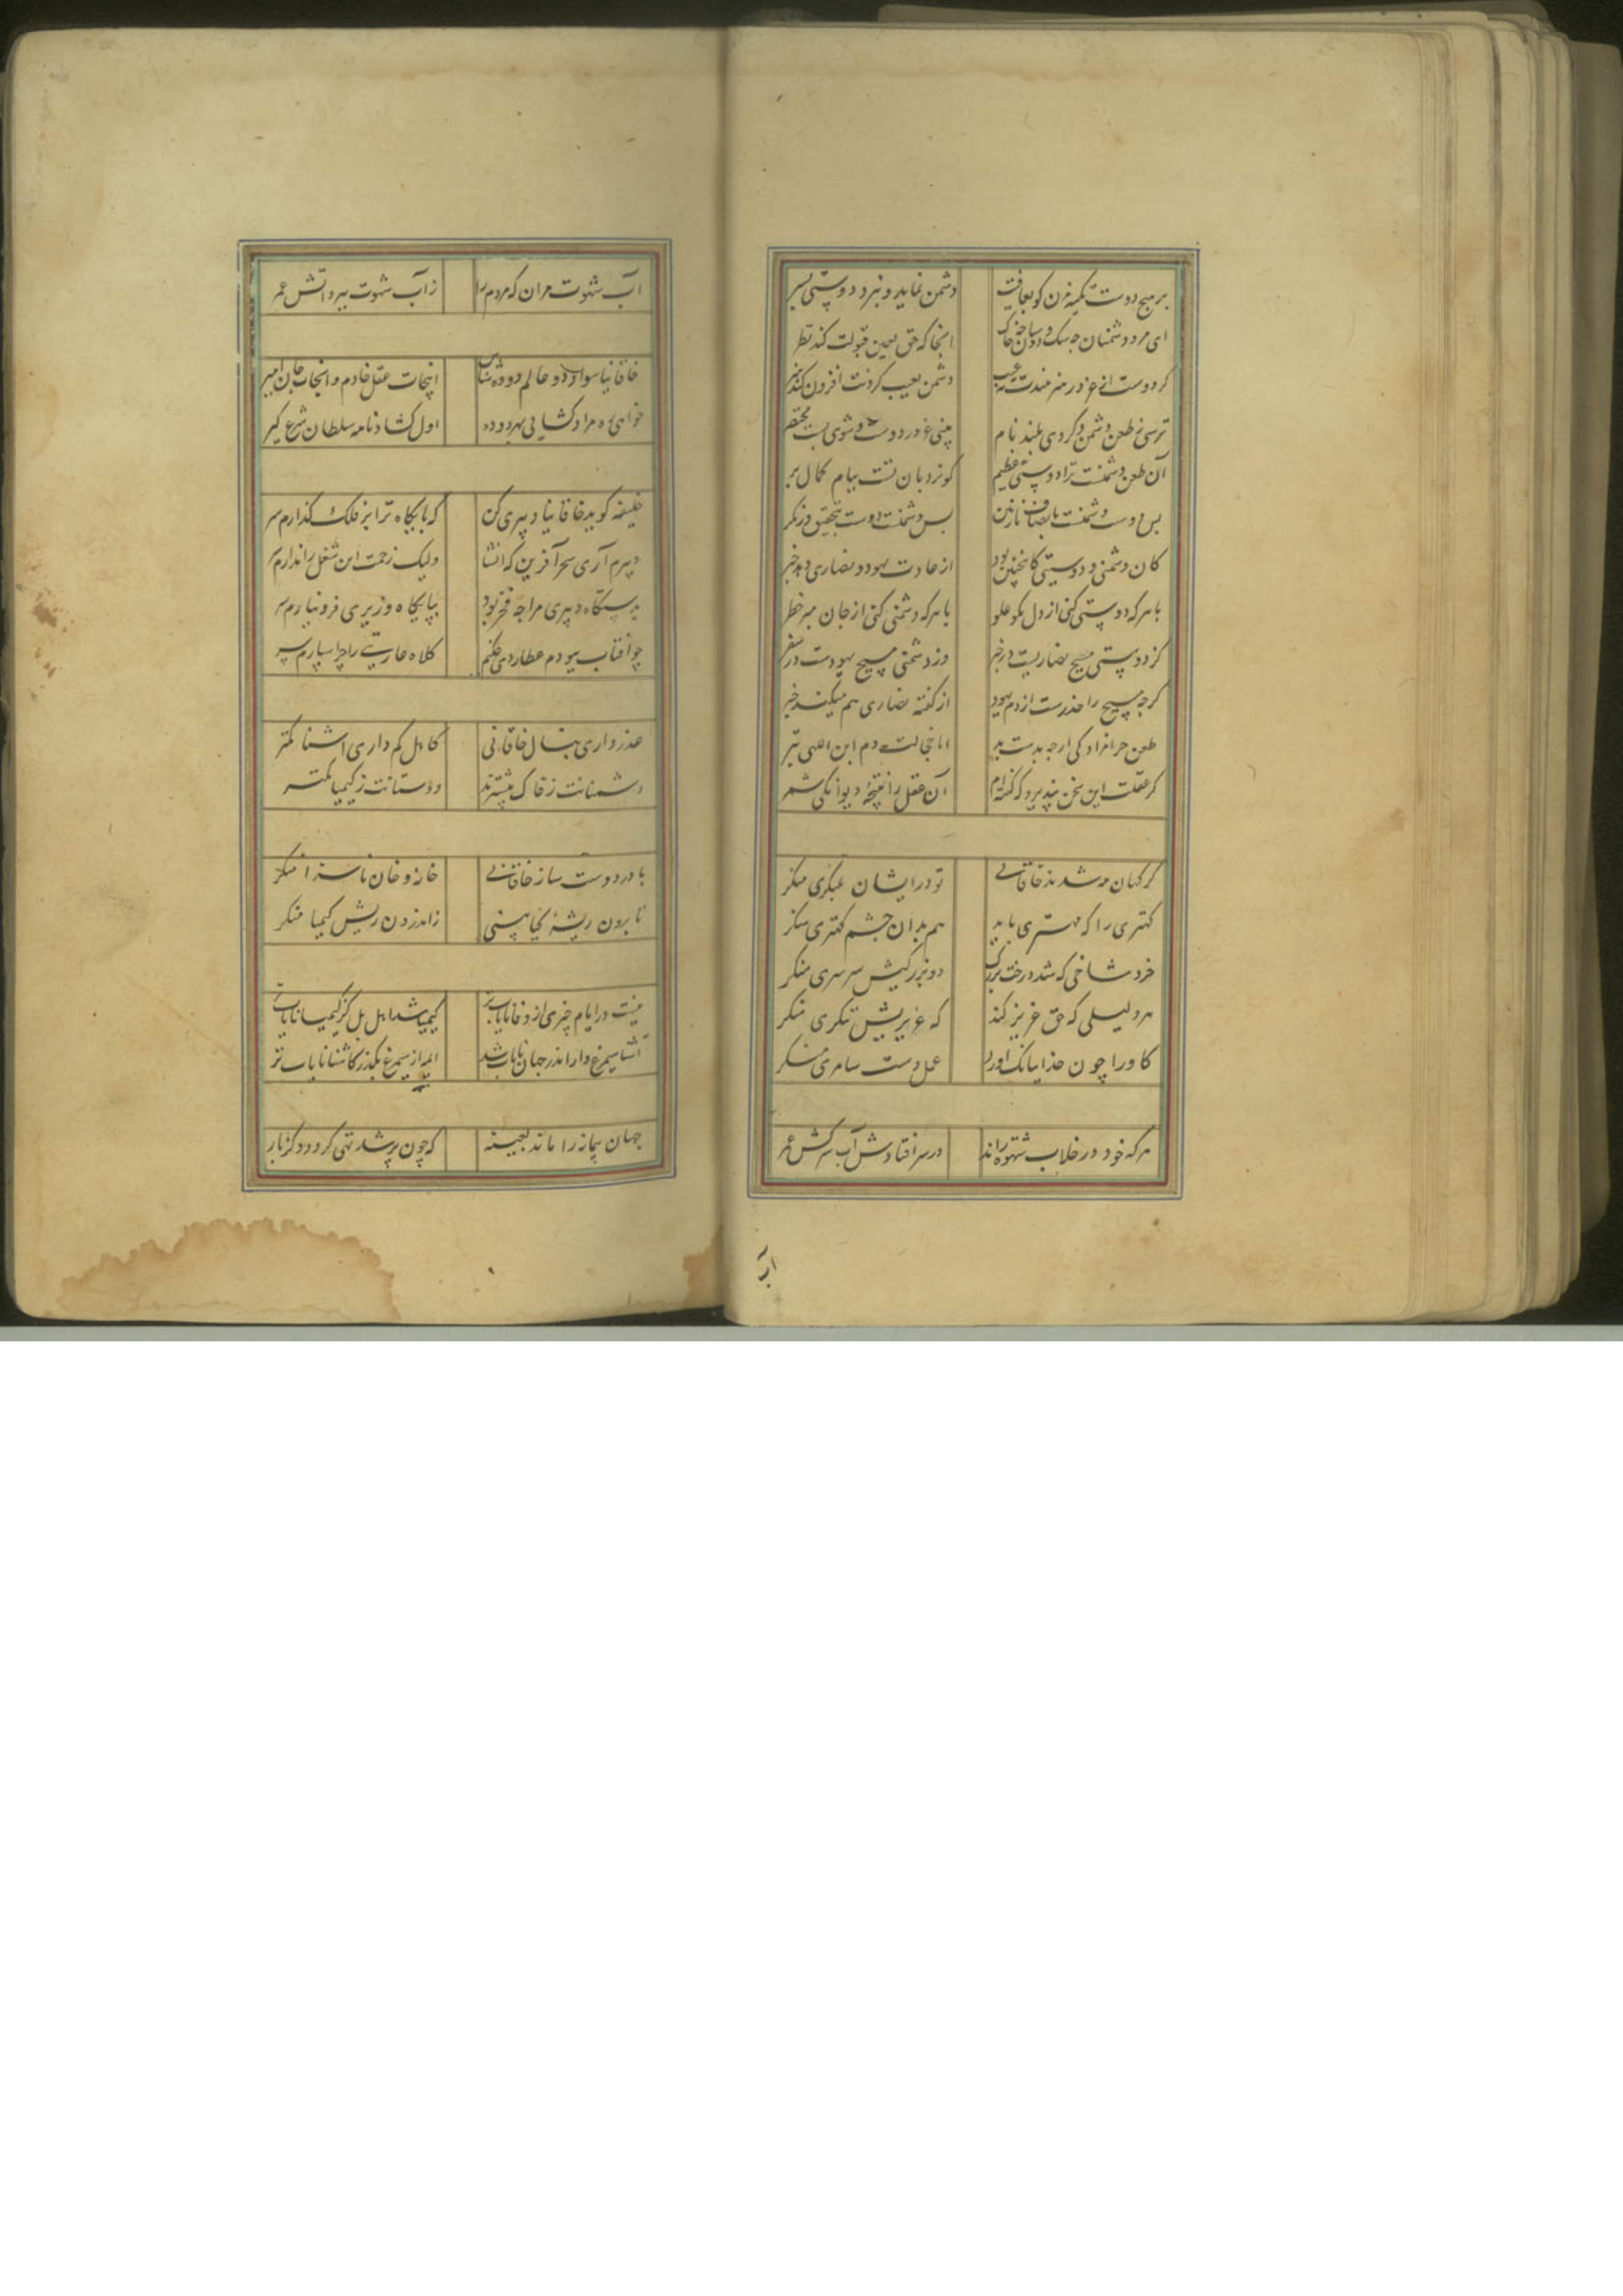 بر هیچ دوست تکیه مزن کو بعاقبت دشمن نماید و نبرد دوستی بسر
ای مرد دشمنان انجا که حق بعین قبولت کند نظر
گر دوست از غرور هنرمندت نه عیب دشمن بعیب کردنت افزون کند هنر
ترسی ز طعن دشمن و کردی بلند نام بینی غرور دوست و شوی پست مختصر
آن طعن دشمنت ترا دوستی عظیم کو نردبان تست ببام کمال بر
بس دوست دشمنست بانصاف بازبین بس دشمنست دوست بتحقیق درنکر
کان دشمنی و دوستی کانچنین بود از عادت یهود و نصاری دهد خبر
با هر که دوستی کنی از دل مکن علو با هر که دشمنی کنی از جان مبر خطر
کز دوستی مسیح نصاریست در وز دشمنی مسیح یهودست در سقر
کرچه مسیح را حذرست از دم یهود از کفته نصاری هم میکند حذر
طعن حرامزادکی ارچه بدست بد اما خجالت دم ابن اللهی بتر
کر عقلت این سخن نپذیرد که کفته‌ام آن عقل را نتیجۀ دیوانکی شمر
کر کهان مه شدند خاقانی تو در ایشان بمکری منکر
کهتری را که مهتری یابد هم بدان چشم کهتری منکر
خرد شاخی که شد درخت بزرک در بزرکیش سرسری منکر
هر ذلیلی که حق عزیز کند که عزیزیش منکری منکر
کاو را چون خدای بانک آورد عمل دست سامری منکر
هر که خود در خلاب شهوة راند در سر افتادش آب سرکش عمر
آب
آب شهوت مران که مردم را زاب شهوت ببرد آتش عمر
خاقانیا سواد دو عالم دو ده شناس اینجات عقل خادم و انجات جان امیر
خواهی ده مراد کشایی بهر دو ده اول کشادنامه سلطان شرع کیر
خلیفه کوید خاقانیا دبیری کن که پایکاه ترا بر فلک کذارم سر
دبیرم آری سحر آفرین که انشا ولیک زحمت این شغل را ندارم سر
بدستکاه دبیری مرا چه فخر بود بپایکاه وزیری فرو نیارم سر
چو آفتاب بودم عطاردی چکنم کلاه عاریتی را چرا سپارم سر
عذر داری بنال خاقانی کاهل کم داری آشنا کمتر
دشمنانت ز خاک بیشترند دوستانت ز کیمیا کمتر
با در دوست ساز خاقانی خانه و خان ناسزا منکر
تا برون ریشۀ کیا بینی ز اندرون ریش کیمیا منکر
نیست در ایام چیزی از وفا نایاب‌تر کیمیا شد اهل بل کز کیمیا نایاب‌تر
آشنا سیمرغ وار اندر جهان نایاب شد ایمه از سیمرغ بکذر کاشنا نایاب تر
جهان پیمانه را ماند بعینه که چون پر شد تهی کردد دکر بار